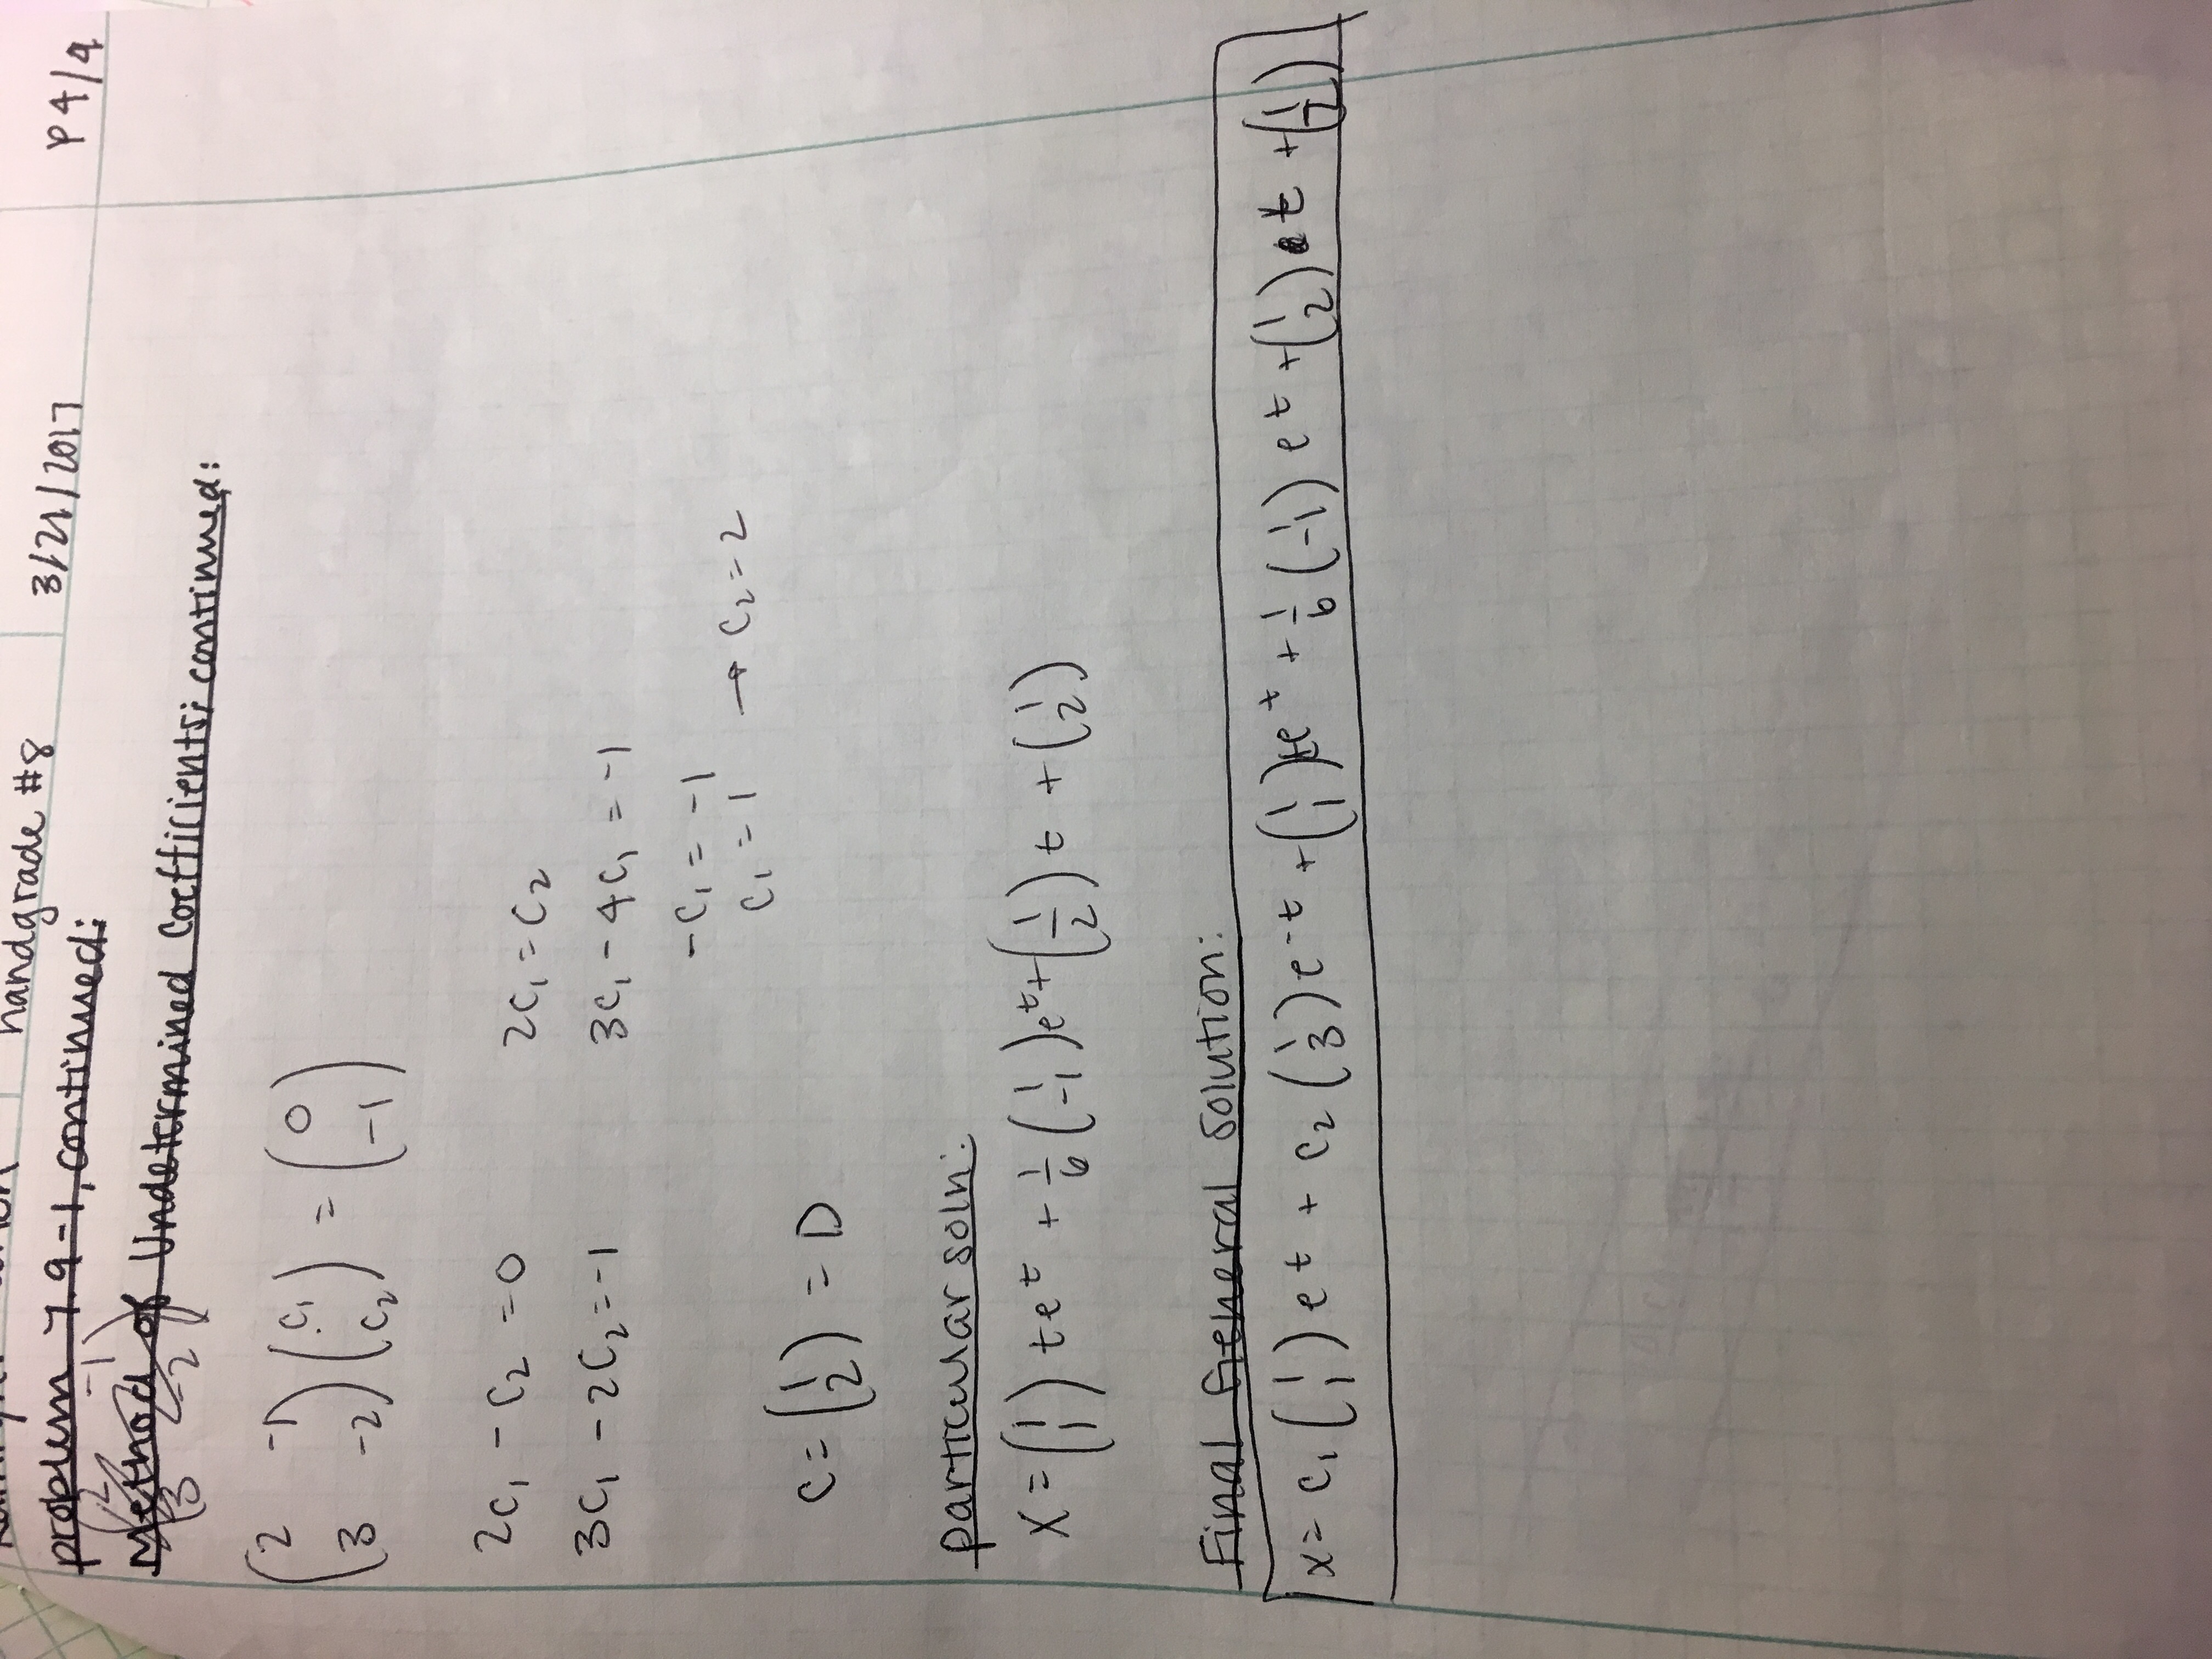 handgrade #8 3/21/2017 P 4/4
problem 7.9-1, continued:
Method of Undetermined Coefficients; continued:
(2 -1) (c₁) = (0)
(3 -2) (c₂) (-1)
2c₁ - c₂ = 0 2c₁ = c₂
3c₁ - 2c₂ = -1 3c₁ - 4c₁ = -1
-c₁ = -1
c₁ = 1 → c₂ = 2
c = (1 2) = D
particular soln:
x = (1 1) te^t + 1/6 (1 -1) e^t + (1 2) t + (1 2)
Final General Solution:
x = c₁ (1 1) e^t + c₂ (1 3) e^-t + (1 1) te^t + 1/6 (1 -1) e^t + (1 2) t + (1 2)